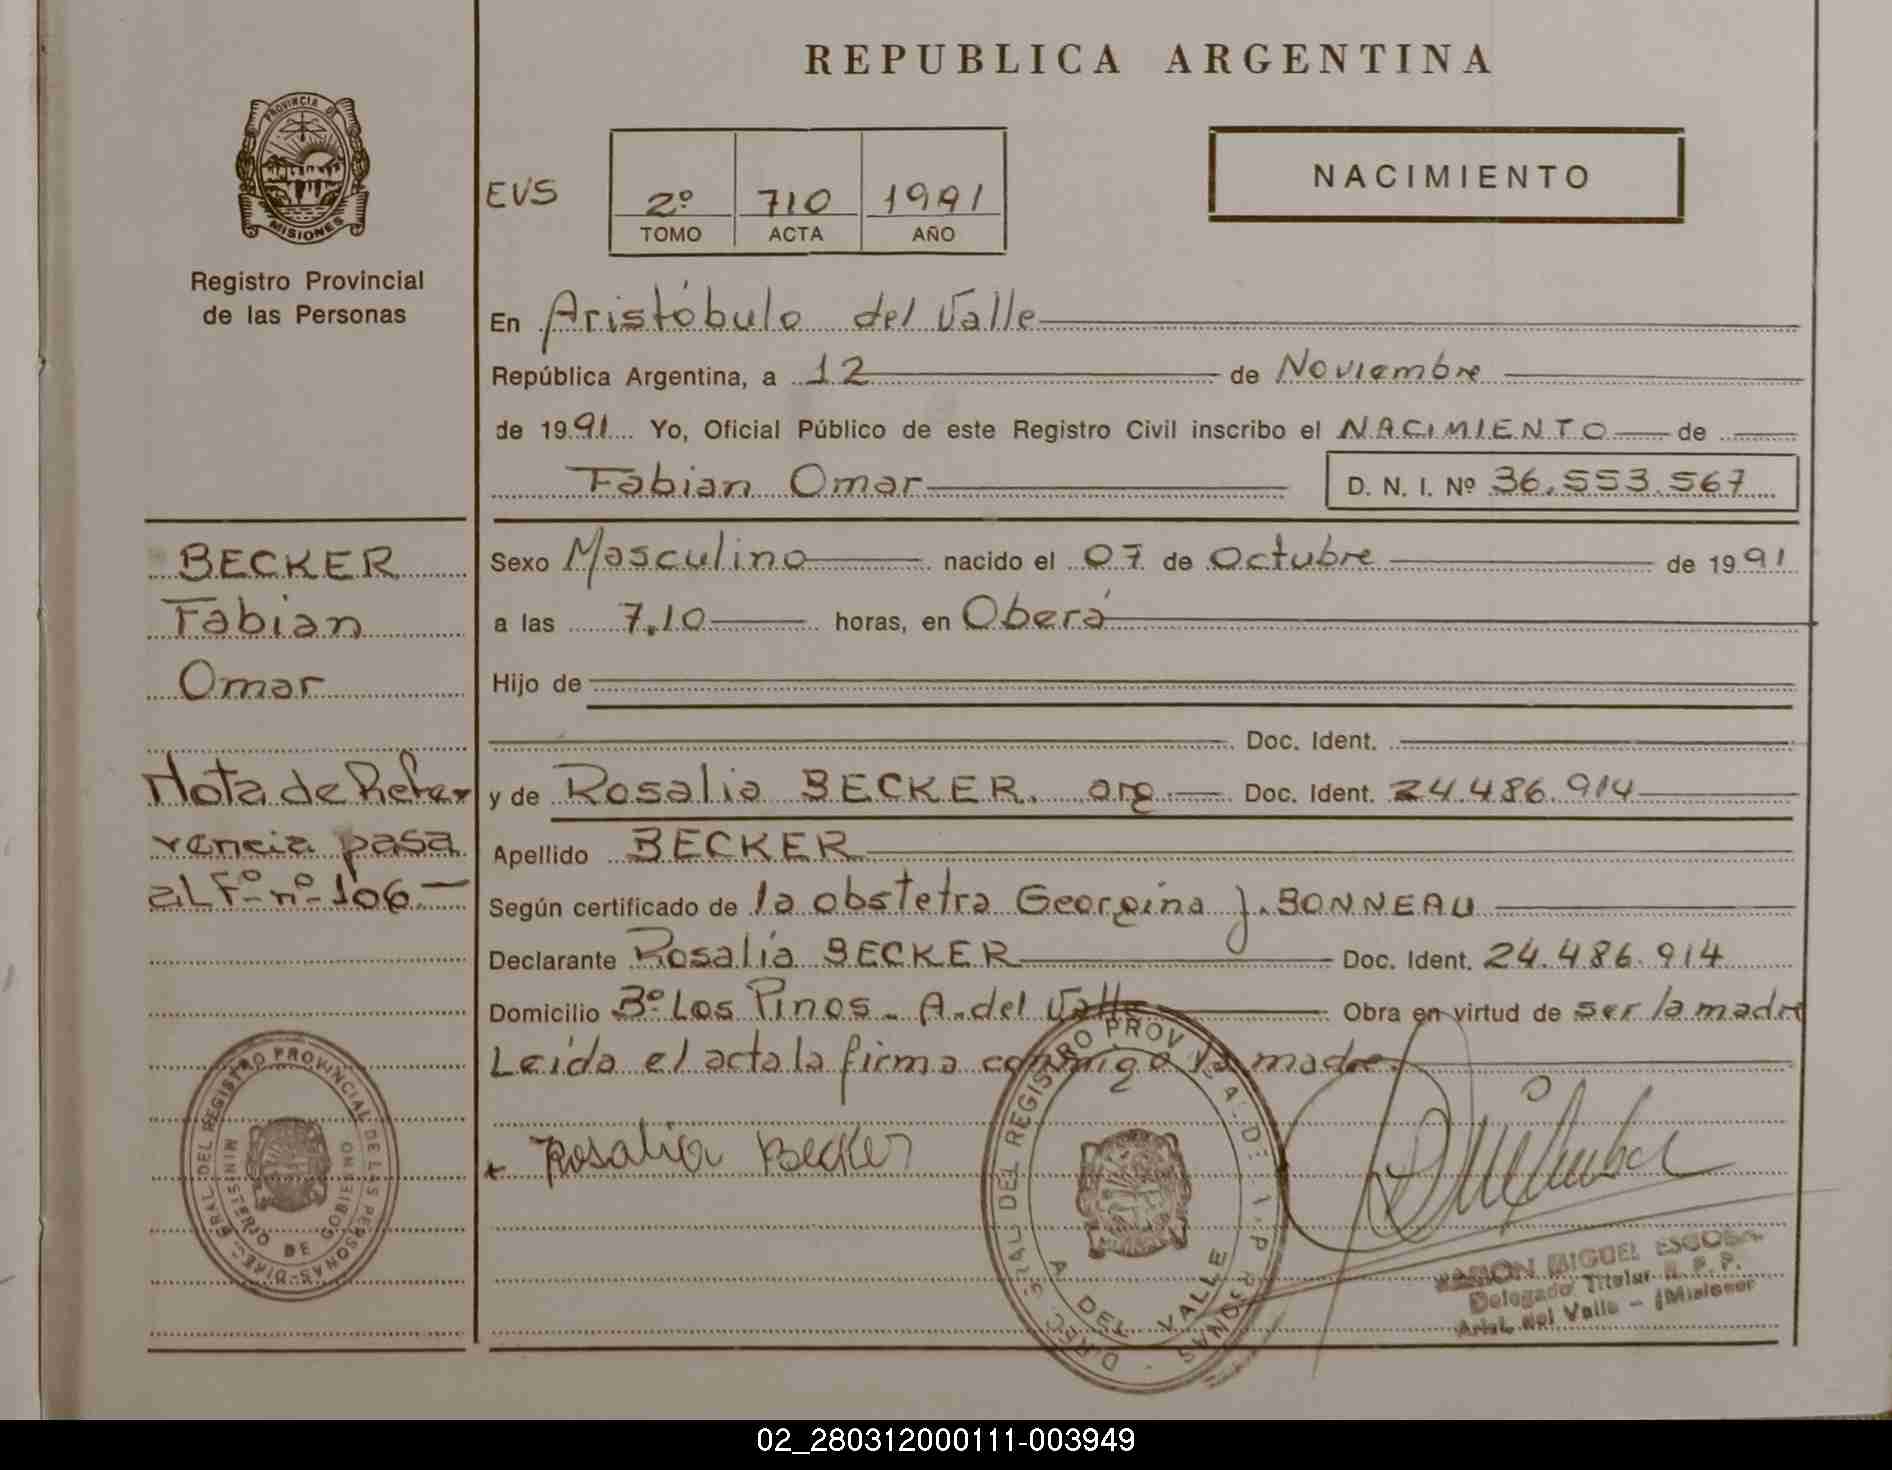 REPUBLICA ARGENTINA
PROVINCIA DE
MISIONES
Registro Provincial
de las Personas
EVS
2º 710 1991
TOMO ACTA AÑO
NACIMIENTO
En Aristóbulo del Valle
República Argentina, a 12 de Noviembre
de 1991 Yo, Oficial Público de este Registro Civil inscribo el NACIMIENTO de
Fabian Omar D. N. I. Nº 36.553.567
BECKER
Fabian
Omar
Nota de Refe-
rencia pasa
al Fº nº 106
Sexo Masculino nacido el 07 de Octubre de 1991
a las 7.10 horas, en Oberá
Hijo de
Doc. Ident.
y de Rosalia BECKER. arg Doc. Ident. 24.486.914
Apellido BECKER
Según certificado de la obstetra Georgina J. BONNEAU
Declarante Rosalia BECKER Doc. Ident. 24.486.914
Domicilio Bº Los Pinos - A. del Valle Obra en virtud de ser la madre
Leida el acta la firma conmigo la madre.
Rosalia Becker
DIREC. GRAL. DEL REGISTRO PROVINCIAL DE LAS PERSONAS
MINISTERIO DE GOBIERNO
DIREC. GRAL DEL REGISTRO PROV
A DEL VALLE
MIGUEL ESCOBAR
Delegado Titular R. P. P.
Arist. del Valle - (Misiones)
02_280312000111-003949